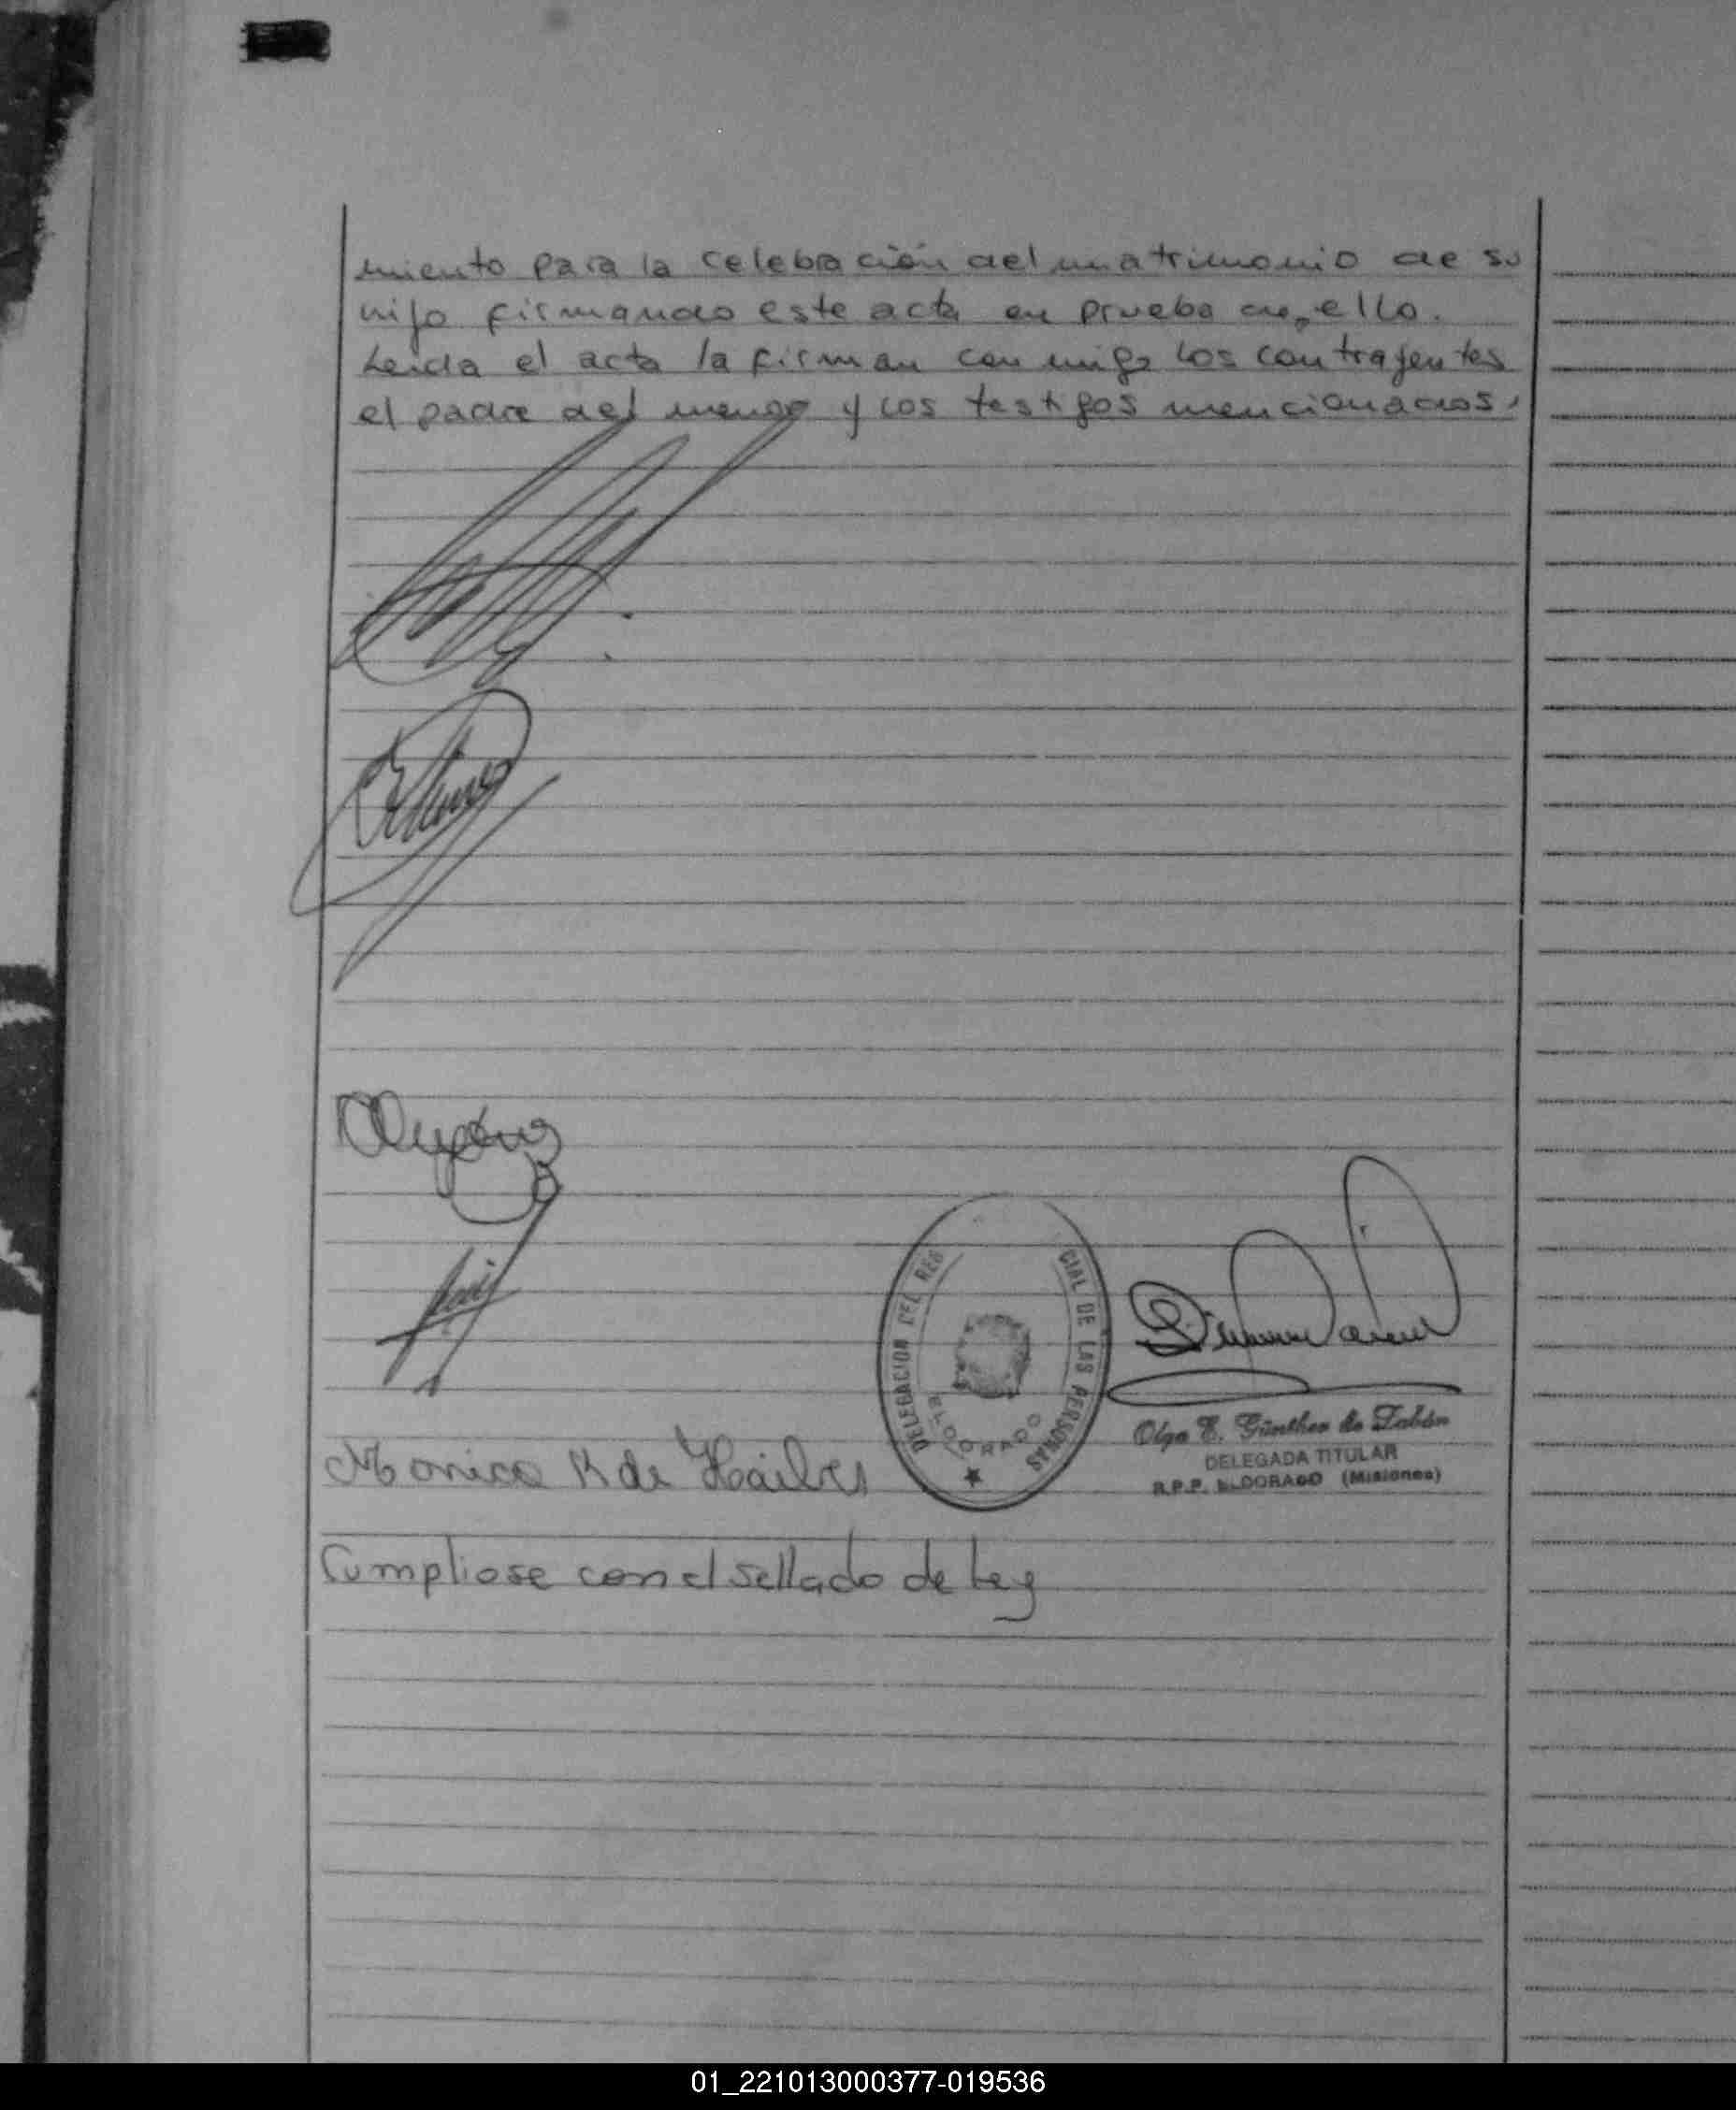 miento para la celebración del matrimonio de su
hijo firmando este acta en prueba de ello.
Leida el acta la firman conmigo los contrayentes
el padre del menor y los testigos mencionados.
DELEGACION DEL REG
CIAL DE LAS PERSONAS
ELDORADO
Olga E. Günther de Tabón
DELEGADA TITULAR
R.P.P. ELDORADO (Misiones)
Monica R de
Cumpliose con el sellado de Ley
01_221013000377-019536